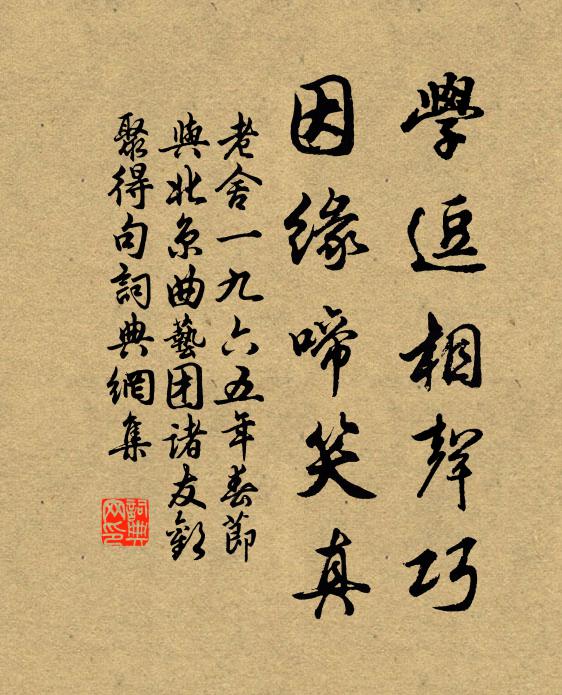 學逗相聲巧
因緣啼笑真
老舍一九六五年春節
與北京曲藝团諸友歡
聚得句詞典網集
詞典
网印